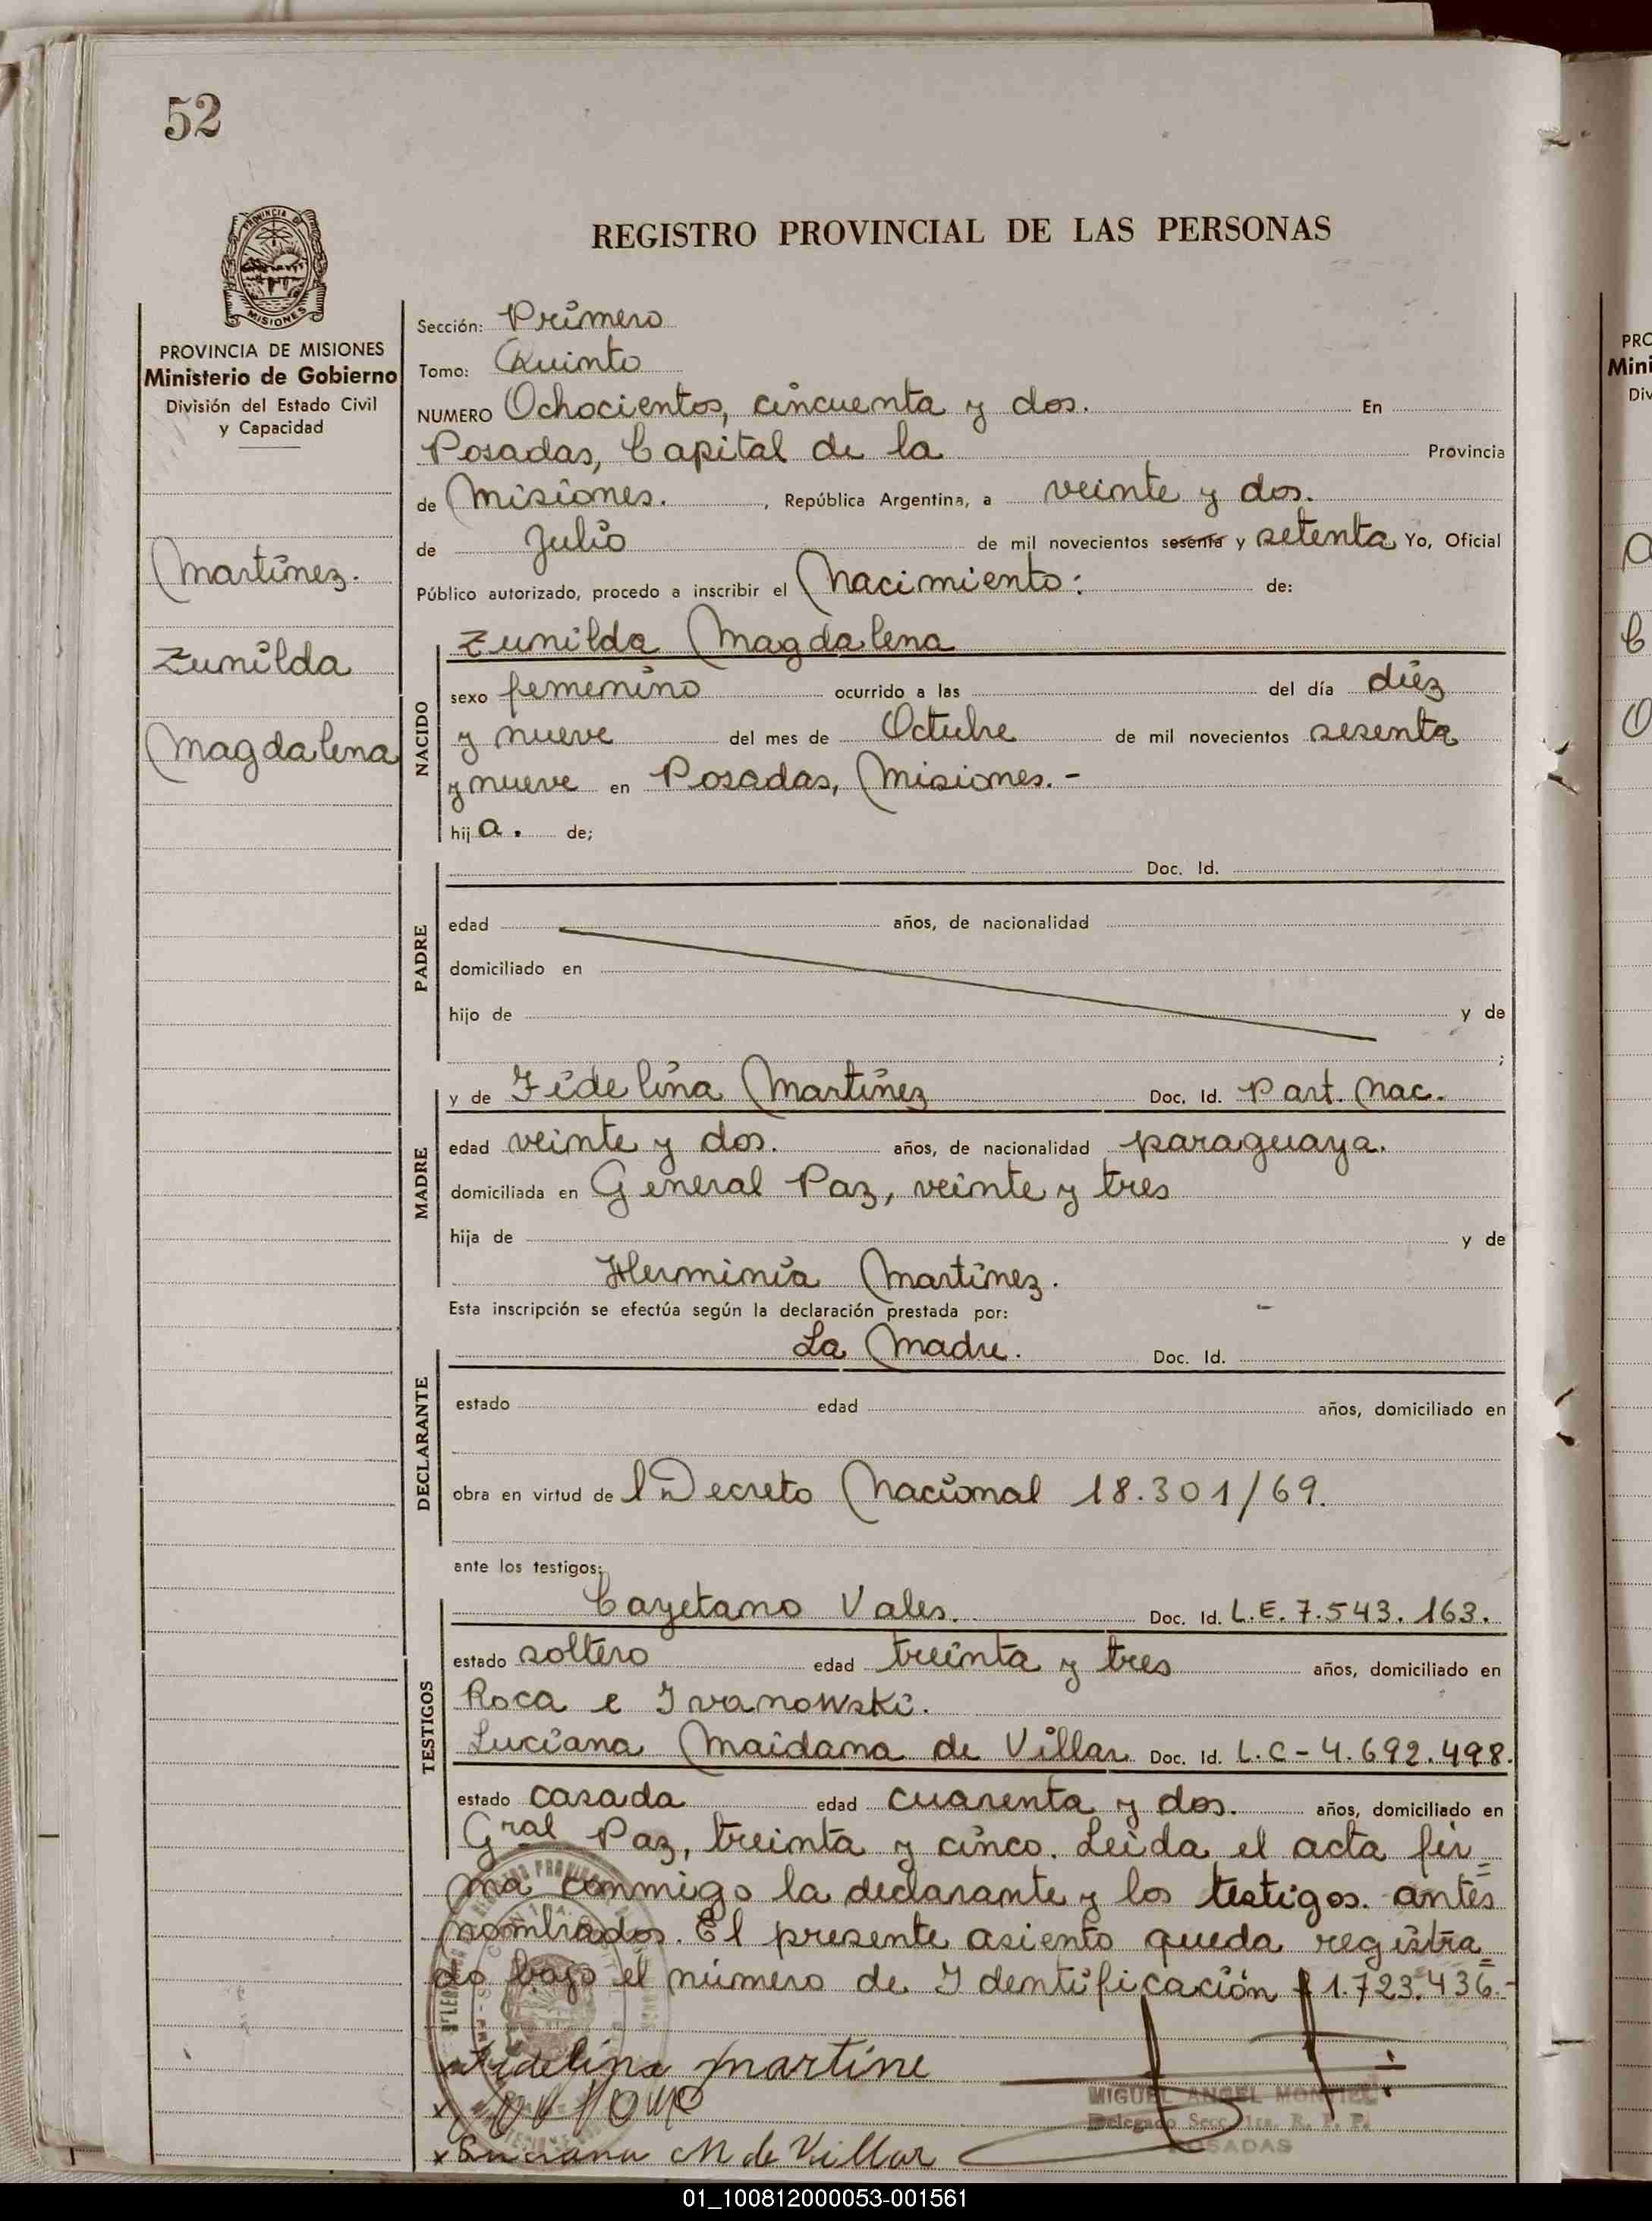 52
REGISTRO PROVINCIAL DE LAS PERSONAS
PROVINCIA DE MISIONES
Ministerio de Gobierno
División del Estado Civil
y Capacidad
Martínez.
Zunilda
Magdalena
Sección: Primero
Tomo: Quinto
NUMERO Ochocientos, cincuenta y dos. En
Posadas, Capital de la Provincia
de Misiones. , República Argentina, a veinte y dos.
de Julio de mil novecientos sesenta y setenta Yo, Oficial
Público autorizado, procedo a inscribir el Nacimiento: de:
NACIDO
Zunilda Magdalena
sexo femenino ocurrido a las del día diez
y nueve del mes de Octubre de mil novecientos sesenta
y nueve en Posadas, Misiones.-
hij a. de;
PADRE
Doc. Id.
edad años, de nacionalidad
domiciliado en
hijo de y de
;
MADRE
y de Fidelina Martínez Doc. Id. Part. Nac.
edad veinte y dos. años, de nacionalidad paraguaya.
domiciliada en General Paz, veinte y tres
hija de y de
Herminia Martínez.
Esta inscripción se efectúa según la declaración prestada por:
DECLARANTE
La Madre. Doc. Id.
estado edad años, domiciliado en
obra en virtud de l Decreto Nacional 18.301/69.
ante los testigos:
TESTIGOS
Cayetano Vales. Doc. Id. L.E. 7.543.163.
estado soltero edad treinta y tres años, domiciliado en
Roca e Ivanowski.
Luciana Maidana de Villar Doc. Id. L.C-4.692.498.
estado casada edad cuarenta y dos. años, domiciliado en
Gral Paz, treinta y cinco. Leída el acta fir=
ma conmigo la declarante y los testigos. antes
nombrados. El presente asiento queda registra=
do bajo el número de Identificación 1.723.436.-
Fidelina Martine
MIGUEL ANGEL MONTIEL
Delegado Secc. 1ra. R. P. P.
POSADAS
x Luciana M de Villar
PRO
Mini
Div
01_100812000053-001561